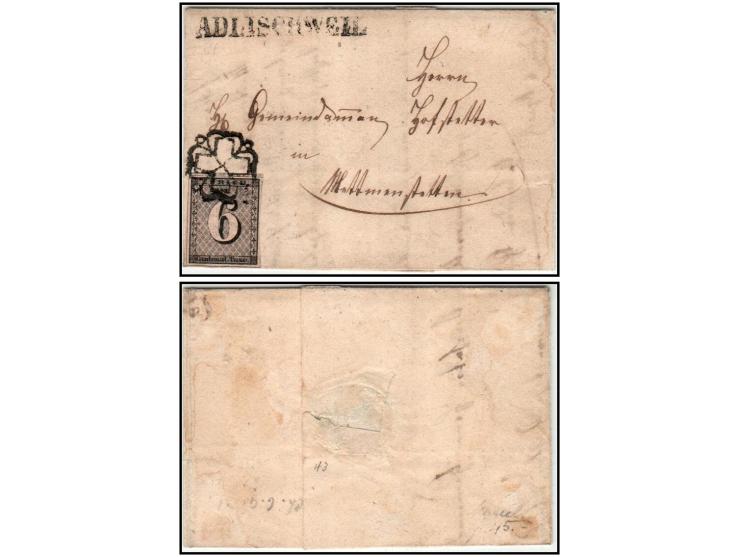 ADLISCHWEIL
Herrn
Hr Gemeindamān Hofstetter
in
Mettmenstetten.
6
Cantonal-Taxe.
43
15.-